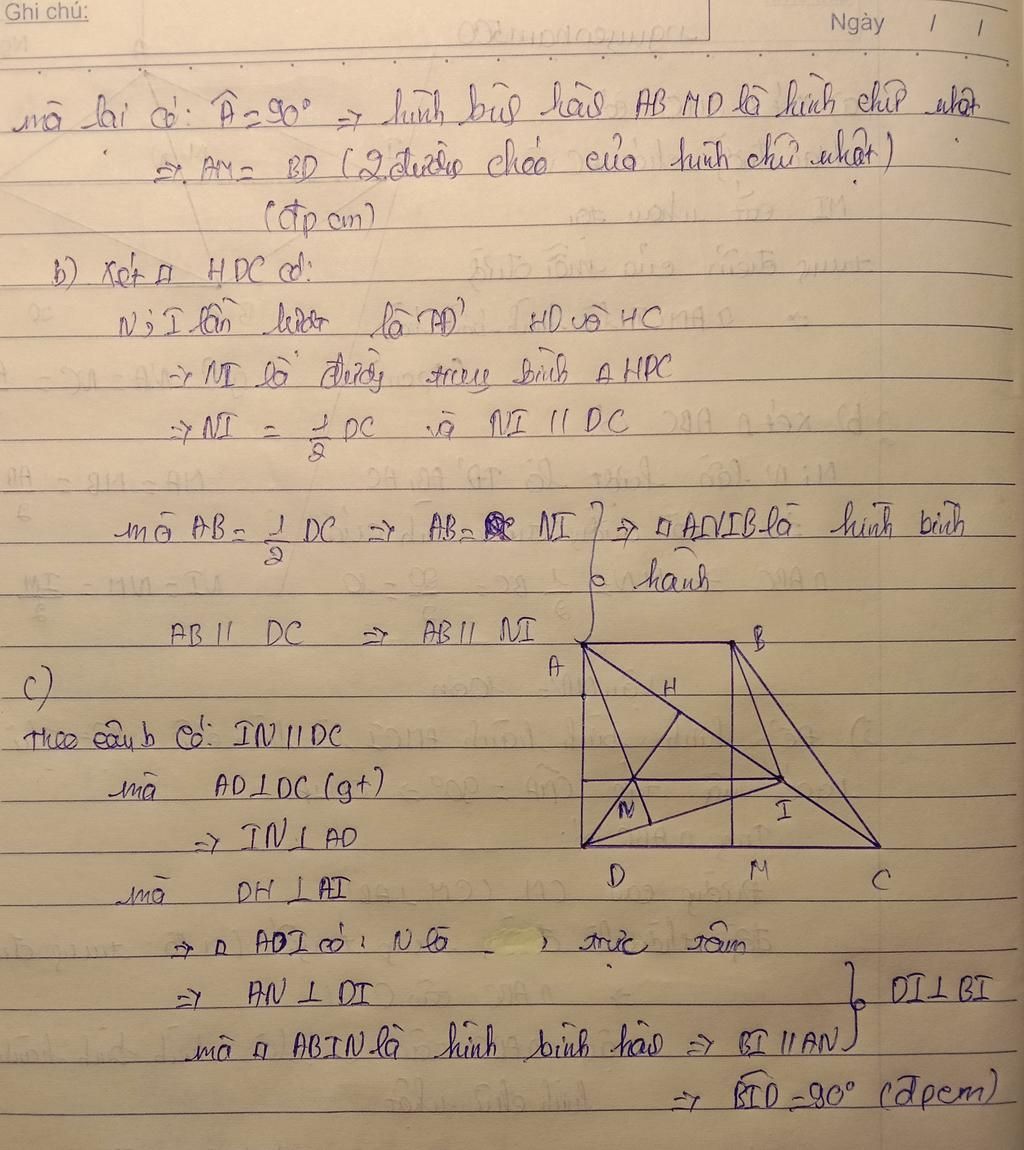 Ghi chú:
Ngày / /
mà lại có: Â = 90° => hình bình hành ABMD là hình chữ nhật
=> AM = BD (2 đường chéo của hình chữ nhật)
(đpcm)
b) xét △ HDC có:
N; I lần lượt là TĐ HD và HC
=> NI là đường trung bình △ HDC
=> NI = 1/2 DC và NI // DC
mà AB = 1/2 DC => AB = NI } => □ ANIB là hình bình
hành
AB // DC => AB // NI
A B
H
N I
D M C
c)
theo câu b có: IN // DC
mà AD ⊥ DC (gt)
=> IN ⊥ AD
mà DH ⊥ AI
=> △ ADI có: N là trực tâm
=> AN ⊥ DI } DI ⊥ BI
mà □ ABIN là hình bình hành => BI // AN
=> BID = 90° (đpcm)